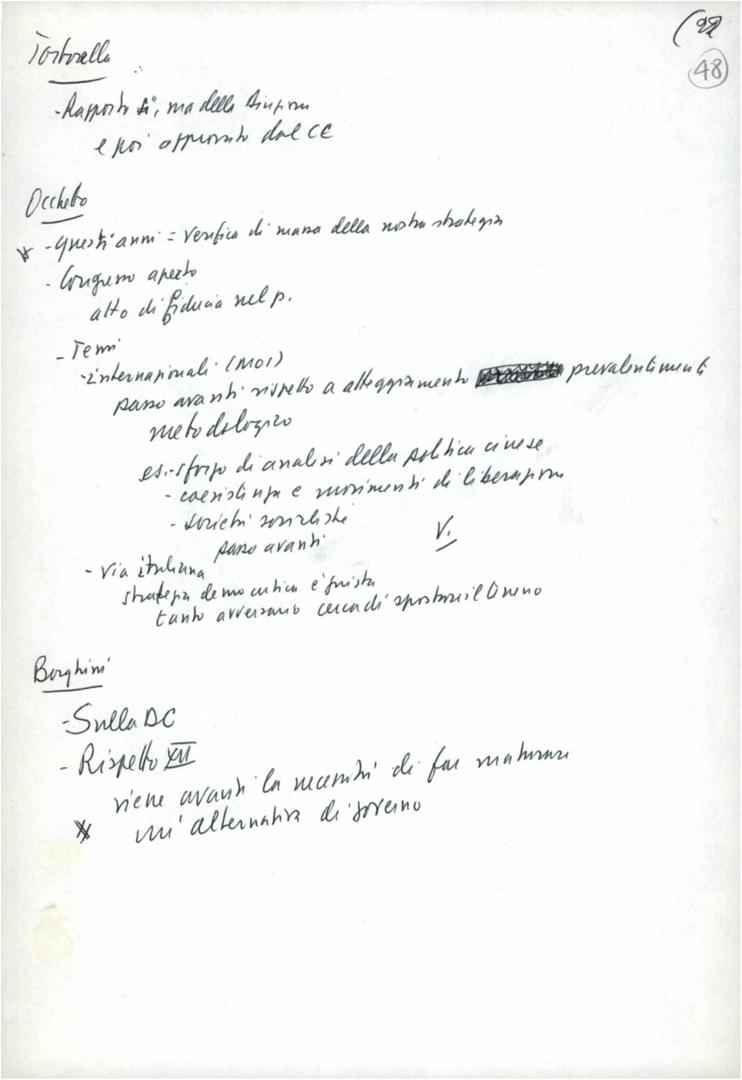 48
Tortorella
- Rapporto sì, ma della Direzione
e poi approvato dal CC
Occhetto
- Questi anni = verifica di massa della nostra strategia
- Congresso aperto
atto di fiducia nel p.
- Temi
- internazionali (MOI)
passo avanti rispetto a atteggiamento prevalentemente
metodologico
es. - sforzo di analisi della politica cinese
- coesistenza e movimenti di liberazione
- società socialiste
passo avanti
V.
- Via italiana
strategia democratica è giusta
tanto avversario cerca di spostare il terreno
Borghini
- Sulla DC
- Rispetto XII
viene avanti la necessità di far maturare
un'alternativa di governo